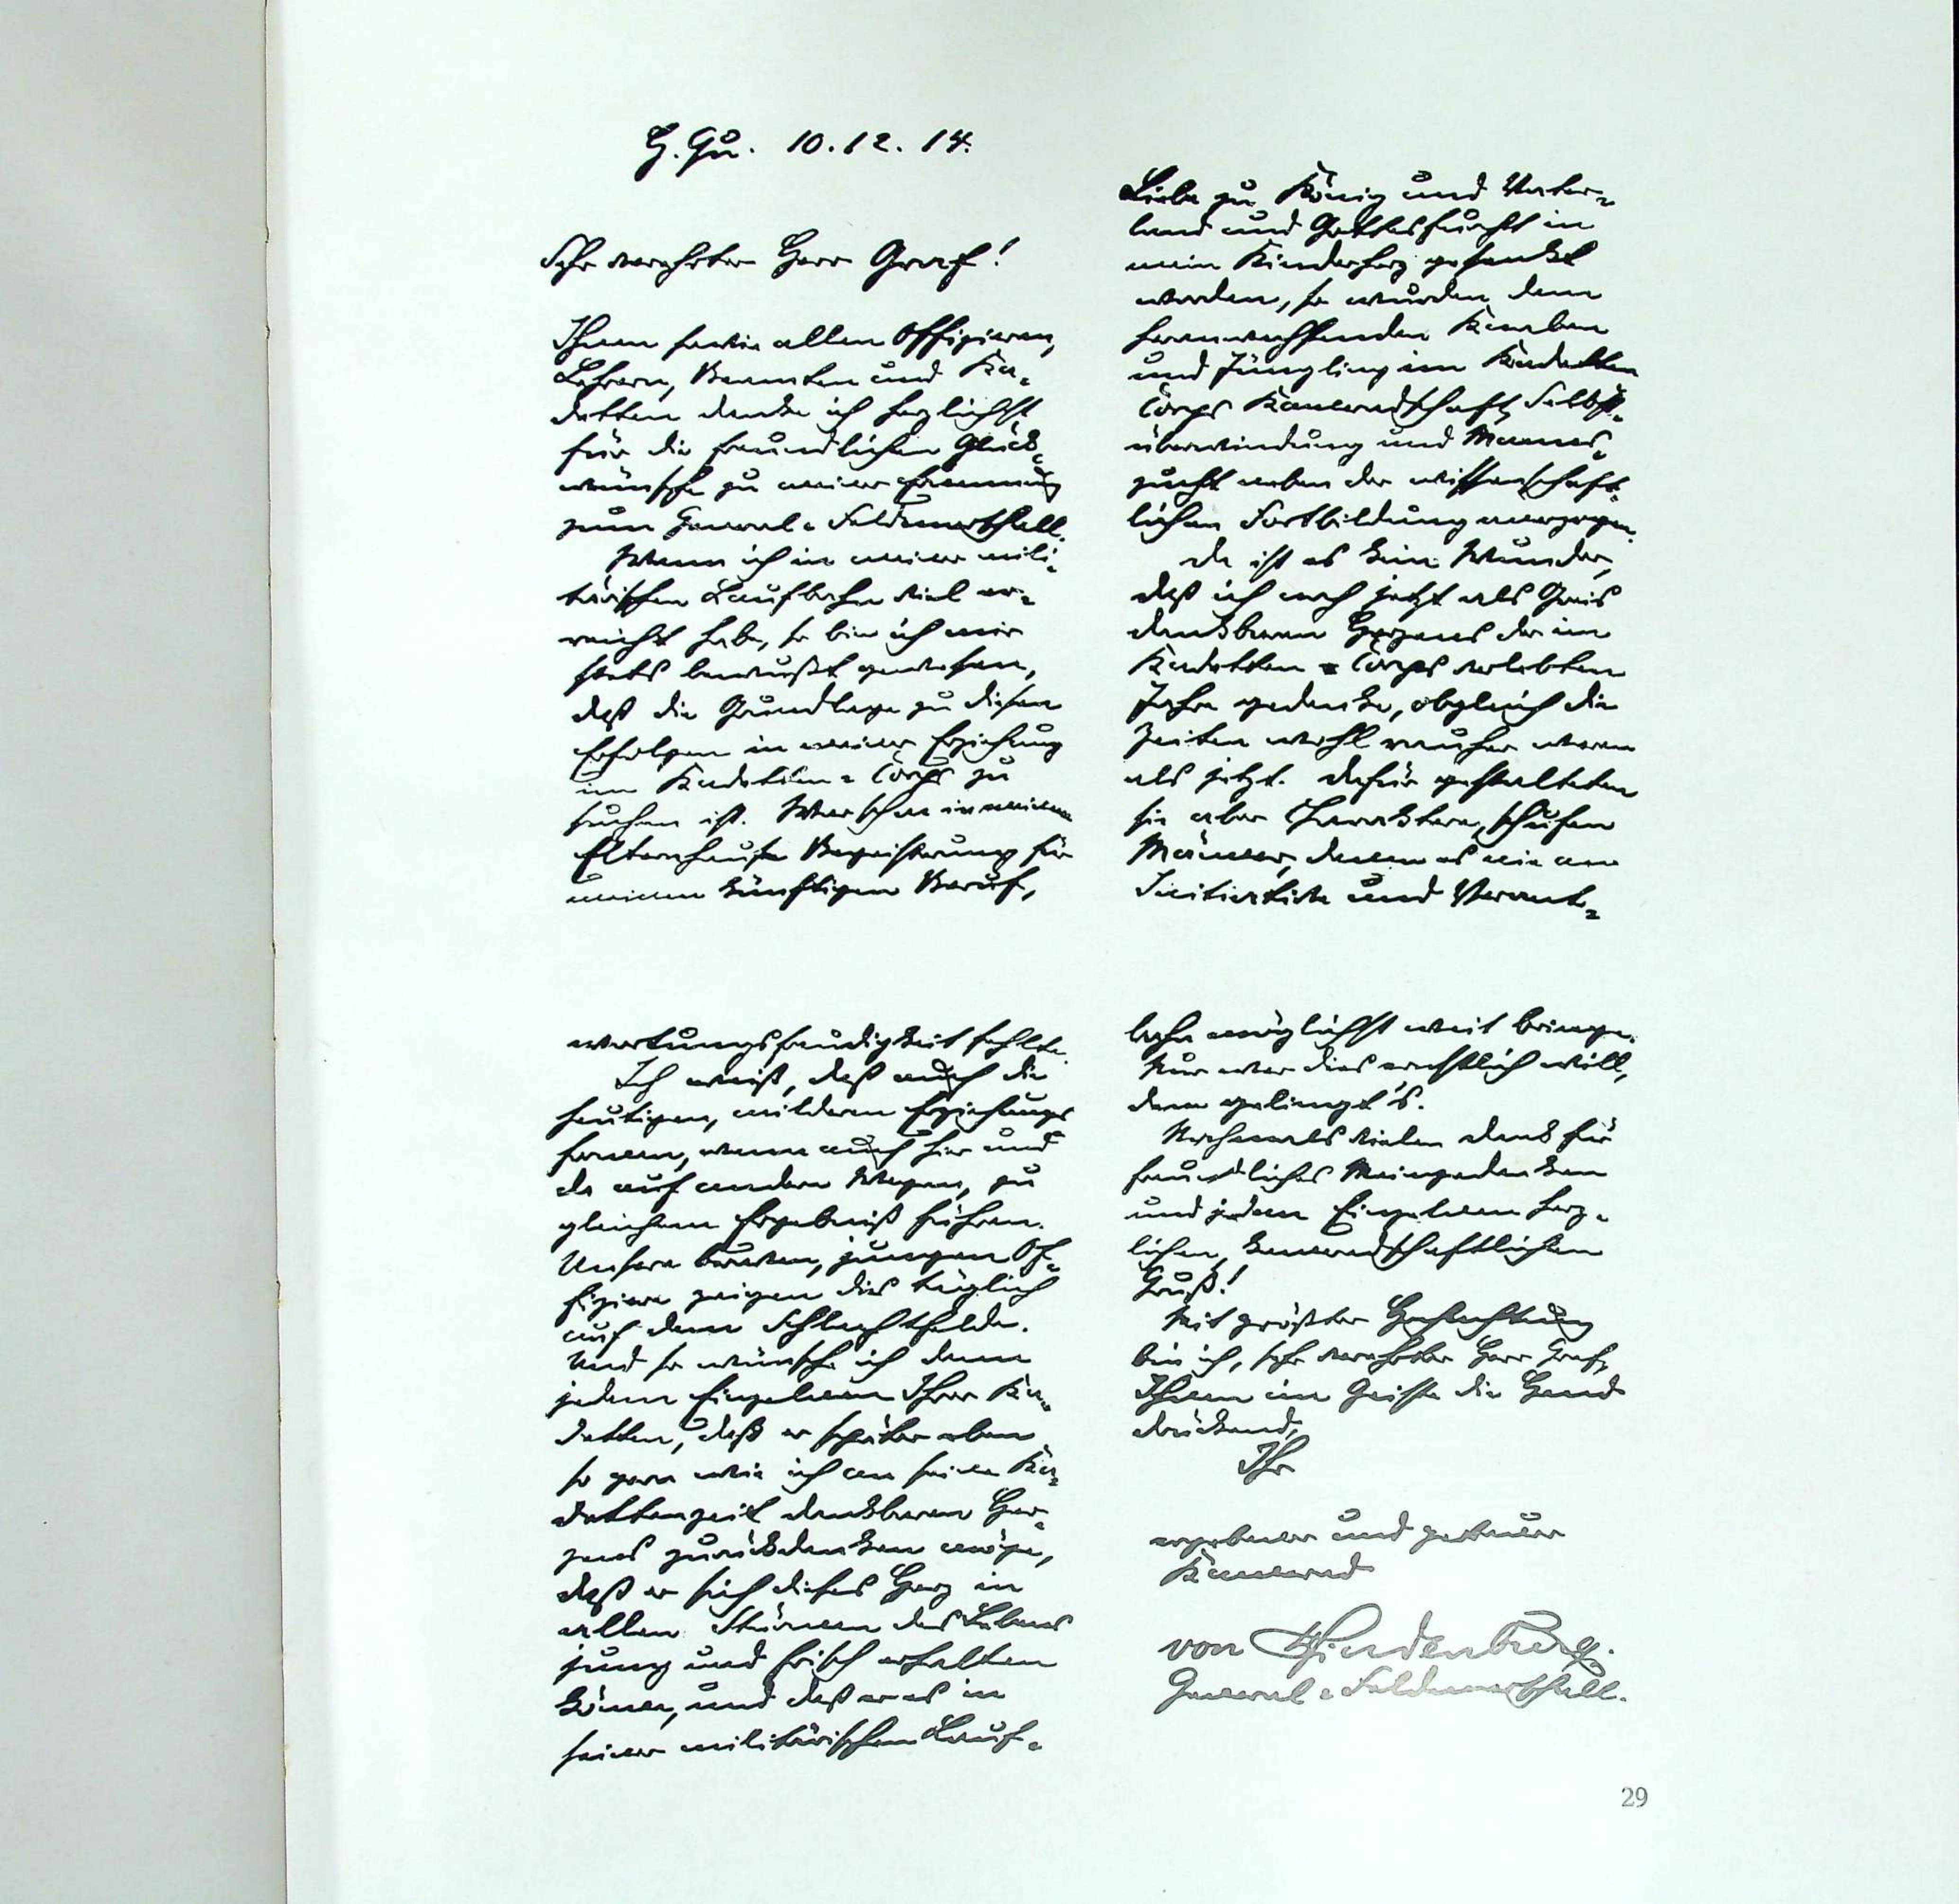 H. Qu. 10.12.14.
Sehr verehrter Herr Graf!
Ihnen sowie allen Offizieren,
Lehrern, Beamten und Ka-
detten danke ich herzlichst
für die freundlichen Glück-
wünsche zu meiner Ernennung
zum General-Feldmarschall.
Wenn ich in meiner mili-
tärischen Laufbahn viel er-
reicht habe, so bin ich mir
stets bewußt gewesen,
daß die Grundlage zu diesen
Erfolgen in meiner Erziehung
im Kadetten-Corps zu
suchen ist. War schon in meinem
Elternhause Begeisterung für
meinen künftigen Beruf,
Liebe zu König und Vater-
land und Gottesfurcht in
mein Kinderherz gesenkt
worden, so wurden dem
heranwachsenden Knaben
und Jüngling im Kadetten
Corps Kameradschaft, Selbst-
überwindung und Manns-
zucht neben der wissenschaft-
lichen Fortbildung anerzogen.
Da ist es kein Wunder,
daß ich noch jetzt als Greis
dankbaren Herzens der im
Kadetten-Corps verlebten
Jahre gedenke, obgleich die
Zeiten wohl rauher waren
als jetzt. Dafür gestalteten
sie aber Charaktere, schufen
Männer, denen es nie an
Initiative und Verant-
wortungsfreudigkeit fehlte.
Ich weiß, daß auch die
heutigen, milderen Erziehungs
formen, wenn auch hier und
da auf andern Wegen, zu
gleichem Ergebniß führen.
Unsere braven, jungen Of-
fiziere zeigen dies täglich
auf dem Schlachtfelde.
Und so wünsche ich denn
jedem Einzelnen Ihrer Ka-
detten, daß er später eben
so gern wie ich an seine Ka-
dettenzeit dankbaren Her-
zens zurückdenken möge,
daß er sich dieses Herz in
allen Stürmen des Lebens
jung und frisch erhalten
könne, und daß er es in
seiner militärischen Lauf-
bahn möglichst weit bringe.
Nur wer dies ernstlich will,
dem gelingt's.
Nochmals vielen Dank für
freundliches Meingedenken
und jedem Einzelnen herz-
lichen, kameradschaftlichen
Gruß!
Mit größter Hochachtung
bin ich, sehr verehrter Herr Graf,
Ihnen im Geiste die Hand
drückend,
Ihr
ergebener und getreuer
Kamerad
von Hindenburg.
General-Feldmarschall.
29